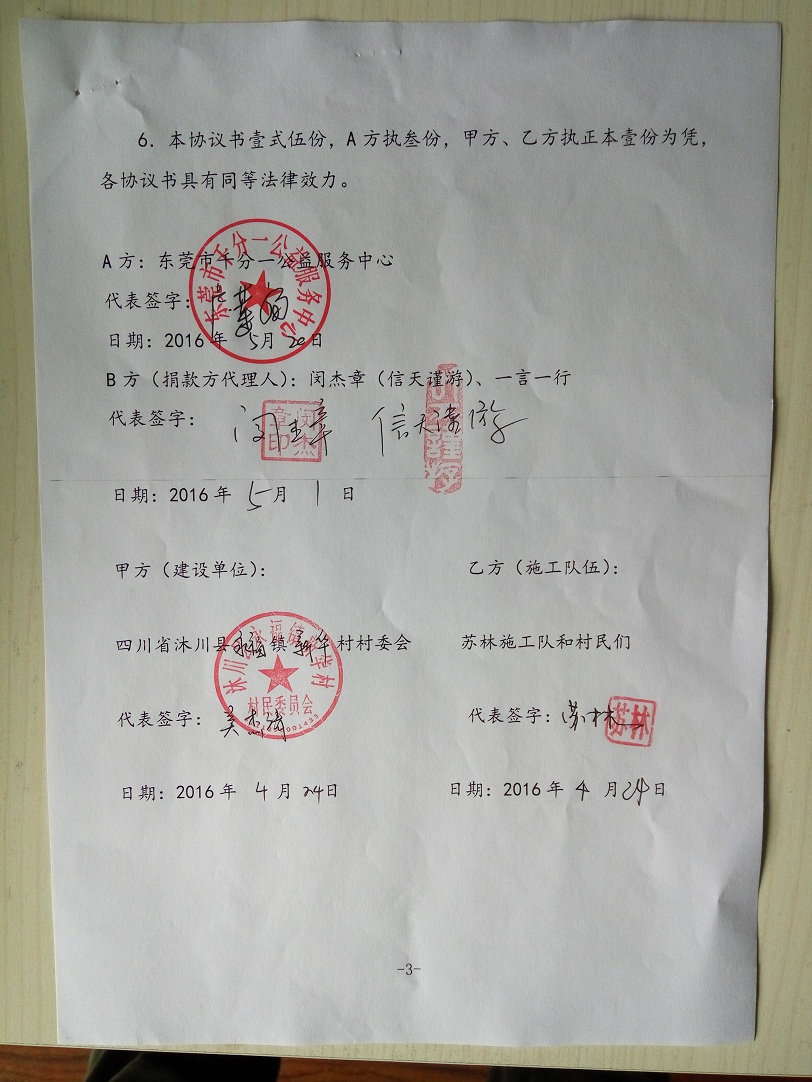 6. 本协议书壹式伍份，A 方执叁份，甲方、乙方执正本壹份为凭，
各协议书具有同等法律效力。
A 方：东莞市千分一公益服务中心
东莞市千分一公益服务中心
代表签字：
日期：2016 年 5月 20日
B 方（捐款方代理人）：闵杰章（信天谨游）、一言一行
代表签字： 闵杰章 信天谨游
闵杰章印
日期：2016 年 5月 1 日
甲方（建设单位）：
乙方（施工队伍）：
四川省沐川县永福镇 新华 村村委会
苏林施工队和村民们
沐川县永福镇新华村
村民委员会
代表签字：
代表签字：苏林
苏林
日期：2016 年 4 月 24日
日期：2016 年 4 月 24日
-3-